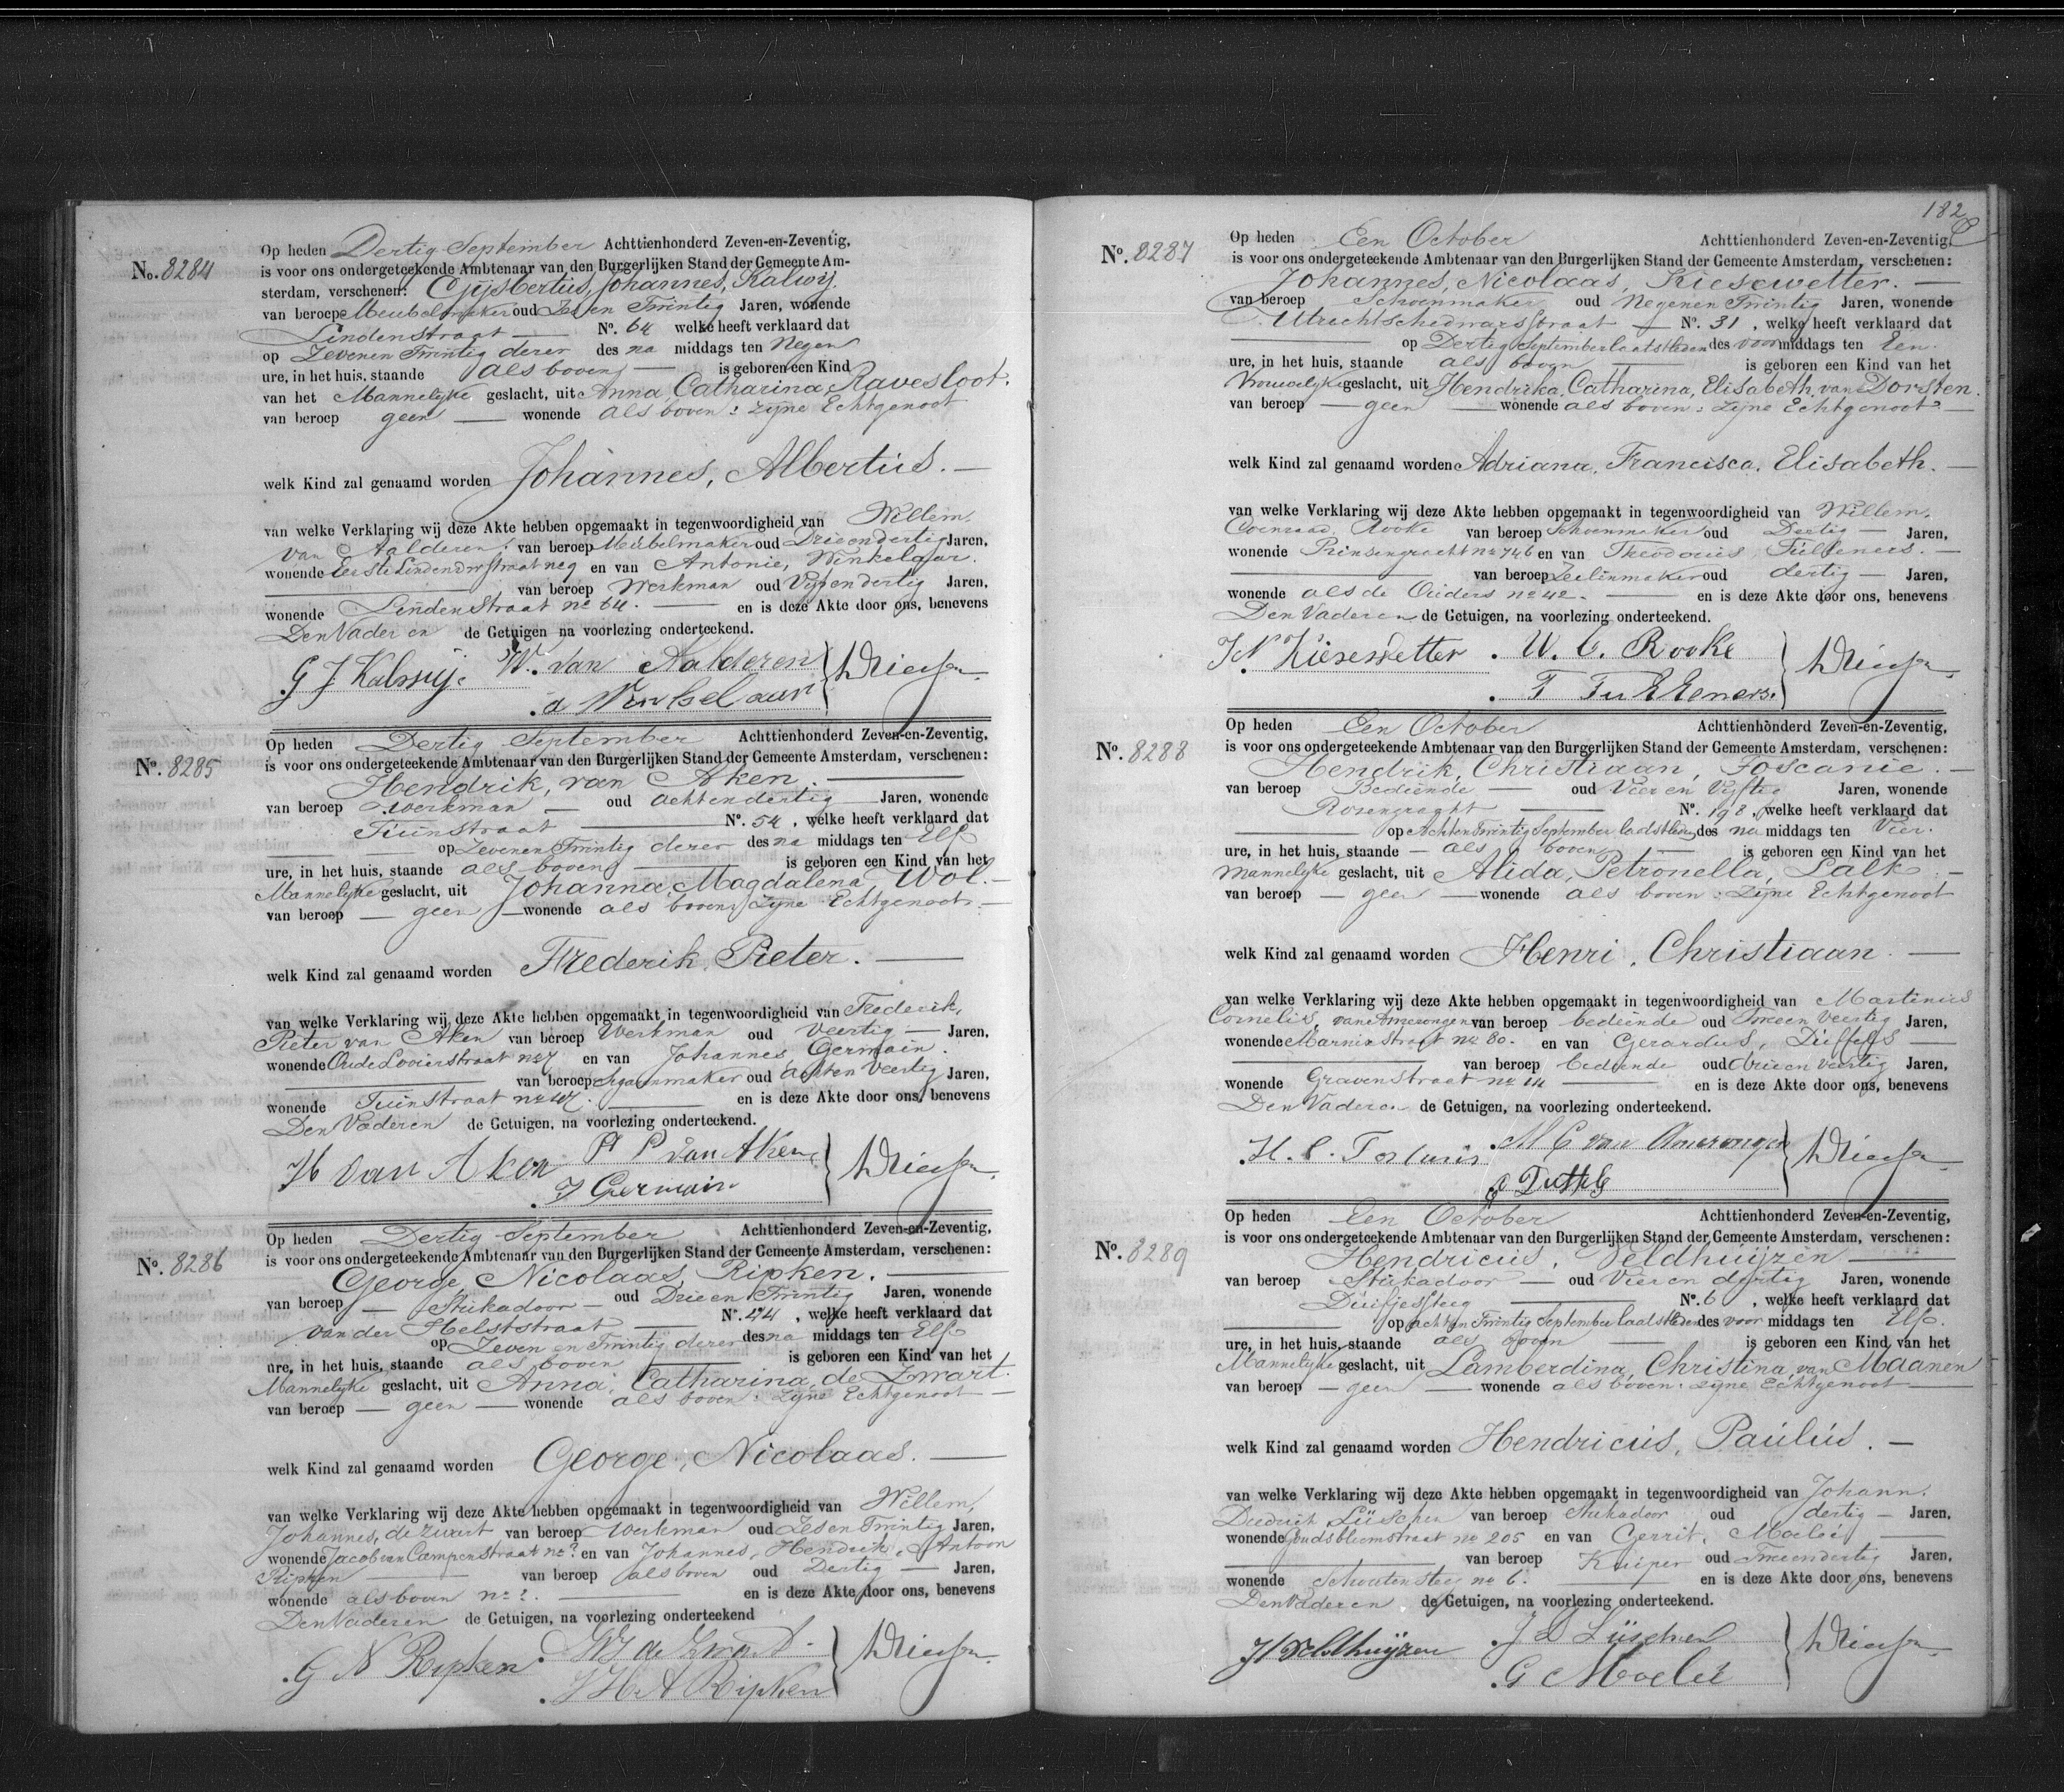 No. 8284
Op heden Dertig September Achttienhonderd Zeven-en-Zeventig,
is voor ons ondergeteekende Ambtenaar van den Burgerlijken Stand der Gemeente Am-
sterdam, verschenen: Gijsbertus, Johannes, Kalwij.
van beroep Meubelmaker oud Zes en Twintig Jaren, wonende
Lindenstraat No. 64 welke heeft verklaard dat
op Zeven en Twintig dezer des na middags ten Negen
ure, in het huis, staande als boven is geboren een Kind
van het Mannelijke geslacht, uit Anna, Catharina, Ravesloot.
van beroep geen wonende als boven: zijne Echtgenoot
welk Kind zal genaamd worden Johannes, Albertus.
van welke Verklaring wij deze Akte hebben opgemaakt in tegenwoordigheid van Willem,
van Aalderen, van beroep Meubelmaker oud Drieendertig Jaren,
wonende Eerste Lindendwrsstraat no 9 en van Antonie, Winkelaar.
van beroep Werkman oud Vijfendertig Jaren,
wonende Lindenstraat no 64. en is deze Akte door ons, benevens
Den Vader en de Getuigen na voorlezing onderteekend.
G J Kalwij. W. van Aalderen
a Winkelaar
No. 8285
Op heden Dertig September Achttienhonderd Zeven-en-Zeventig,
is voor ons ondergeteekende Ambtenaar van den Burgerlijken Stand der Gemeente Amsterdam, verschenen:
Hendrik, van Aken.
van beroep Werkman oud achtendertig Jaren, wonende
Tuinstraat No. 54, welke heeft verklaard dat
op Zevenen Twintig dezer des na middags ten Elf
ure, in het huis, staande als boven is geboren een Kind van het
Mannelijke geslacht, uit Johanna, Magdalena, Wol.
van beroep geen wonende als boven, Zijne Echtgenoot
welk Kind zal genaamd worden Frederik, Pieter.
van welke Verklaring wij deze Akte hebben opgemaakt in tegenwoordigheid van Frederik,
Pieter van Aken van beroep Werkman oud Veertig Jaren,
wonende Oude Looierstraat no 7 en van Johannes, Germain.
van beroep Sigarenmaker oud achten Veertig Jaren,
wonende Tuinstraat no en is deze Akte door ons, benevens
Den Vader en de Getuigen, na voorlezing onderteekend.
H van Aken P van Aken
J Germain
No. 8286
Op heden Dertig September Achttienhonderd Zeven-en-Zeventig,
is voor ons ondergeteekende Ambtenaar van den Burgerlijken Stand der Gemeente Amsterdam, verschenen:
George, Nicolaas, Ripken.
van beroep Stukadoor oud Drieen Twintig Jaren, wonende
van der Helststraat No. 44, welke heeft verklaard dat
op Zeven en Twintig dezer des na middags ten Elf
ure, in het huis, staande als boven is geboren een Kind van het
Mannelijke geslacht, uit Anna, Catharina, de Zwart.
van beroep geen wonende als boven: Zijne Echtgenoot
welk Kind zal genaamd worden George, Nicolaas.
van welke Verklaring wij deze Akte hebben opgemaakt in tegenwoordigheid van Willem,
Johannes, de Zwart van beroep Werkman oud Zes en Twintig Jaren,
wonende Jacob van Campenstraat no ? en van Johannes, Hendrik, Antoon
Ripken van beroep als boven oud Dertig Jaren,
wonende als boven no ?. en is deze Akte door ons, benevens
Den Vader en de Getuigen, na voorlezing onderteekend
G N Ripken W J de Zwart
J H A Ripken
182
No. 8287
Op heden Een October Achttienhonderd Zeven-en-Zeventig,
is voor ons ondergeteekende Ambtenaar van den Burgerlijken Stand der Gemeente Amsterdam, verschenen:
Johannes, Nicolaas, Kiesewetter.
van beroep Schoenmaker oud Negenen Twintig Jaren, wonende
Utrechtschedwarsstraat No. 31, welke heeft verklaard dat
op Dertig September laatstleden des voor middags ten Een
ure, in het huis, staande als boven is geboren een Kind van het
Vrouwelijke geslacht, uit Hendrika, Catharina, Elisabeth, van Dorsten.
van beroep geen wonende als boven: Zijne Echtgenoot
welk Kind zal genaamd worden Adriana, Francisca, Elisabeth.
van welke Verklaring wij deze Akte hebben opgemaakt in tegenwoordigheid van Willem,
Coenraad, Rooke van beroep Schoenmaker oud Dertig Jaren,
wonende Prinsengracht no 746 en van Theodorus,
van beroep oud dertig Jaren,
wonende als de Ouders no 42. en is deze Akte door ons, benevens
Den Vader en de Getuigen, na voorlezing onderteekend.
J N Kiesewetter. W. C. Rooke
No. 8288
Op heden Een October Achttienhonderd Zeven-en-Zeventig,
is voor ons ondergeteekende Ambtenaar van den Burgerlijken Stand der Gemeente Amsterdam, verschenen:
Hendrik, Christiaan, Toscanie.
van beroep Bediende oud Vier en Vijftig Jaren, wonende
Rosengragt No. 198, welke heeft verklaard dat
op Achten Twintig September laatstleden des na middags ten Vier.
ure, in het huis, staande als boven is geboren een Kind van het
Mannelijke geslacht, uit Alida, Petronella, Lalk.
van beroep geen wonende als boven: Zijne Echtgenoot
welk Kind zal genaamd worden Henri, Christiaan.
van welke Verklaring wij deze Akte hebben opgemaakt in tegenwoordigheid van Martinus
Cornelis, van Amerongen van beroep bediende oud Tweeen Veertig Jaren,
wonende Marnixstraat no 80. en van Gerardus, Duffels
van beroep bediende oud drieen Veertig Jaren,
wonende Gravenstraat no 14 en is deze Akte door ons, benevens
Den Vader en de Getuigen, na voorlezing onderteekend.
H. C. Toscanie M C van Amerongen
No. 8289
Op heden Een October Achttienhonderd Zeven-en-Zeventig,
is voor ons ondergeteekende Ambtenaar van den Burgerlijken Stand der Gemeente Amsterdam, verschenen:
Hendricus, Veldhuijzen
van beroep Stukadoor oud Vier en dertig Jaren, wonende
Duifjessteeg No. 6, welke heeft verklaard dat
op achten Twintig September laatstleden des voor middags ten Elf.
ure, in het huis, staande als boven is geboren een Kind van het
Mannelijke geslacht, uit Lamberdina, Christina, van Maanen
van beroep geen wonende als boven: Zijne Echtgenoot
welk Kind zal genaamd worden Hendricus, Paulus.
van welke Verklaring wij deze Akte hebben opgemaakt in tegenwoordigheid van Johann,
Diedrich Lüscher van beroep Stukadoor oud dertig Jaren,
wonende Goudsbloemstraat no 205 en van Gerrit, Moelei
van beroep Kuiper oud Tweeendertig Jaren,
wonende Schoutensteeg no 6. en is deze Akte door ons, benevens
Den Vader en de Getuigen, na voorlezing onderteekend.
H Veldhuijzen J D Lüscher
G Moelei